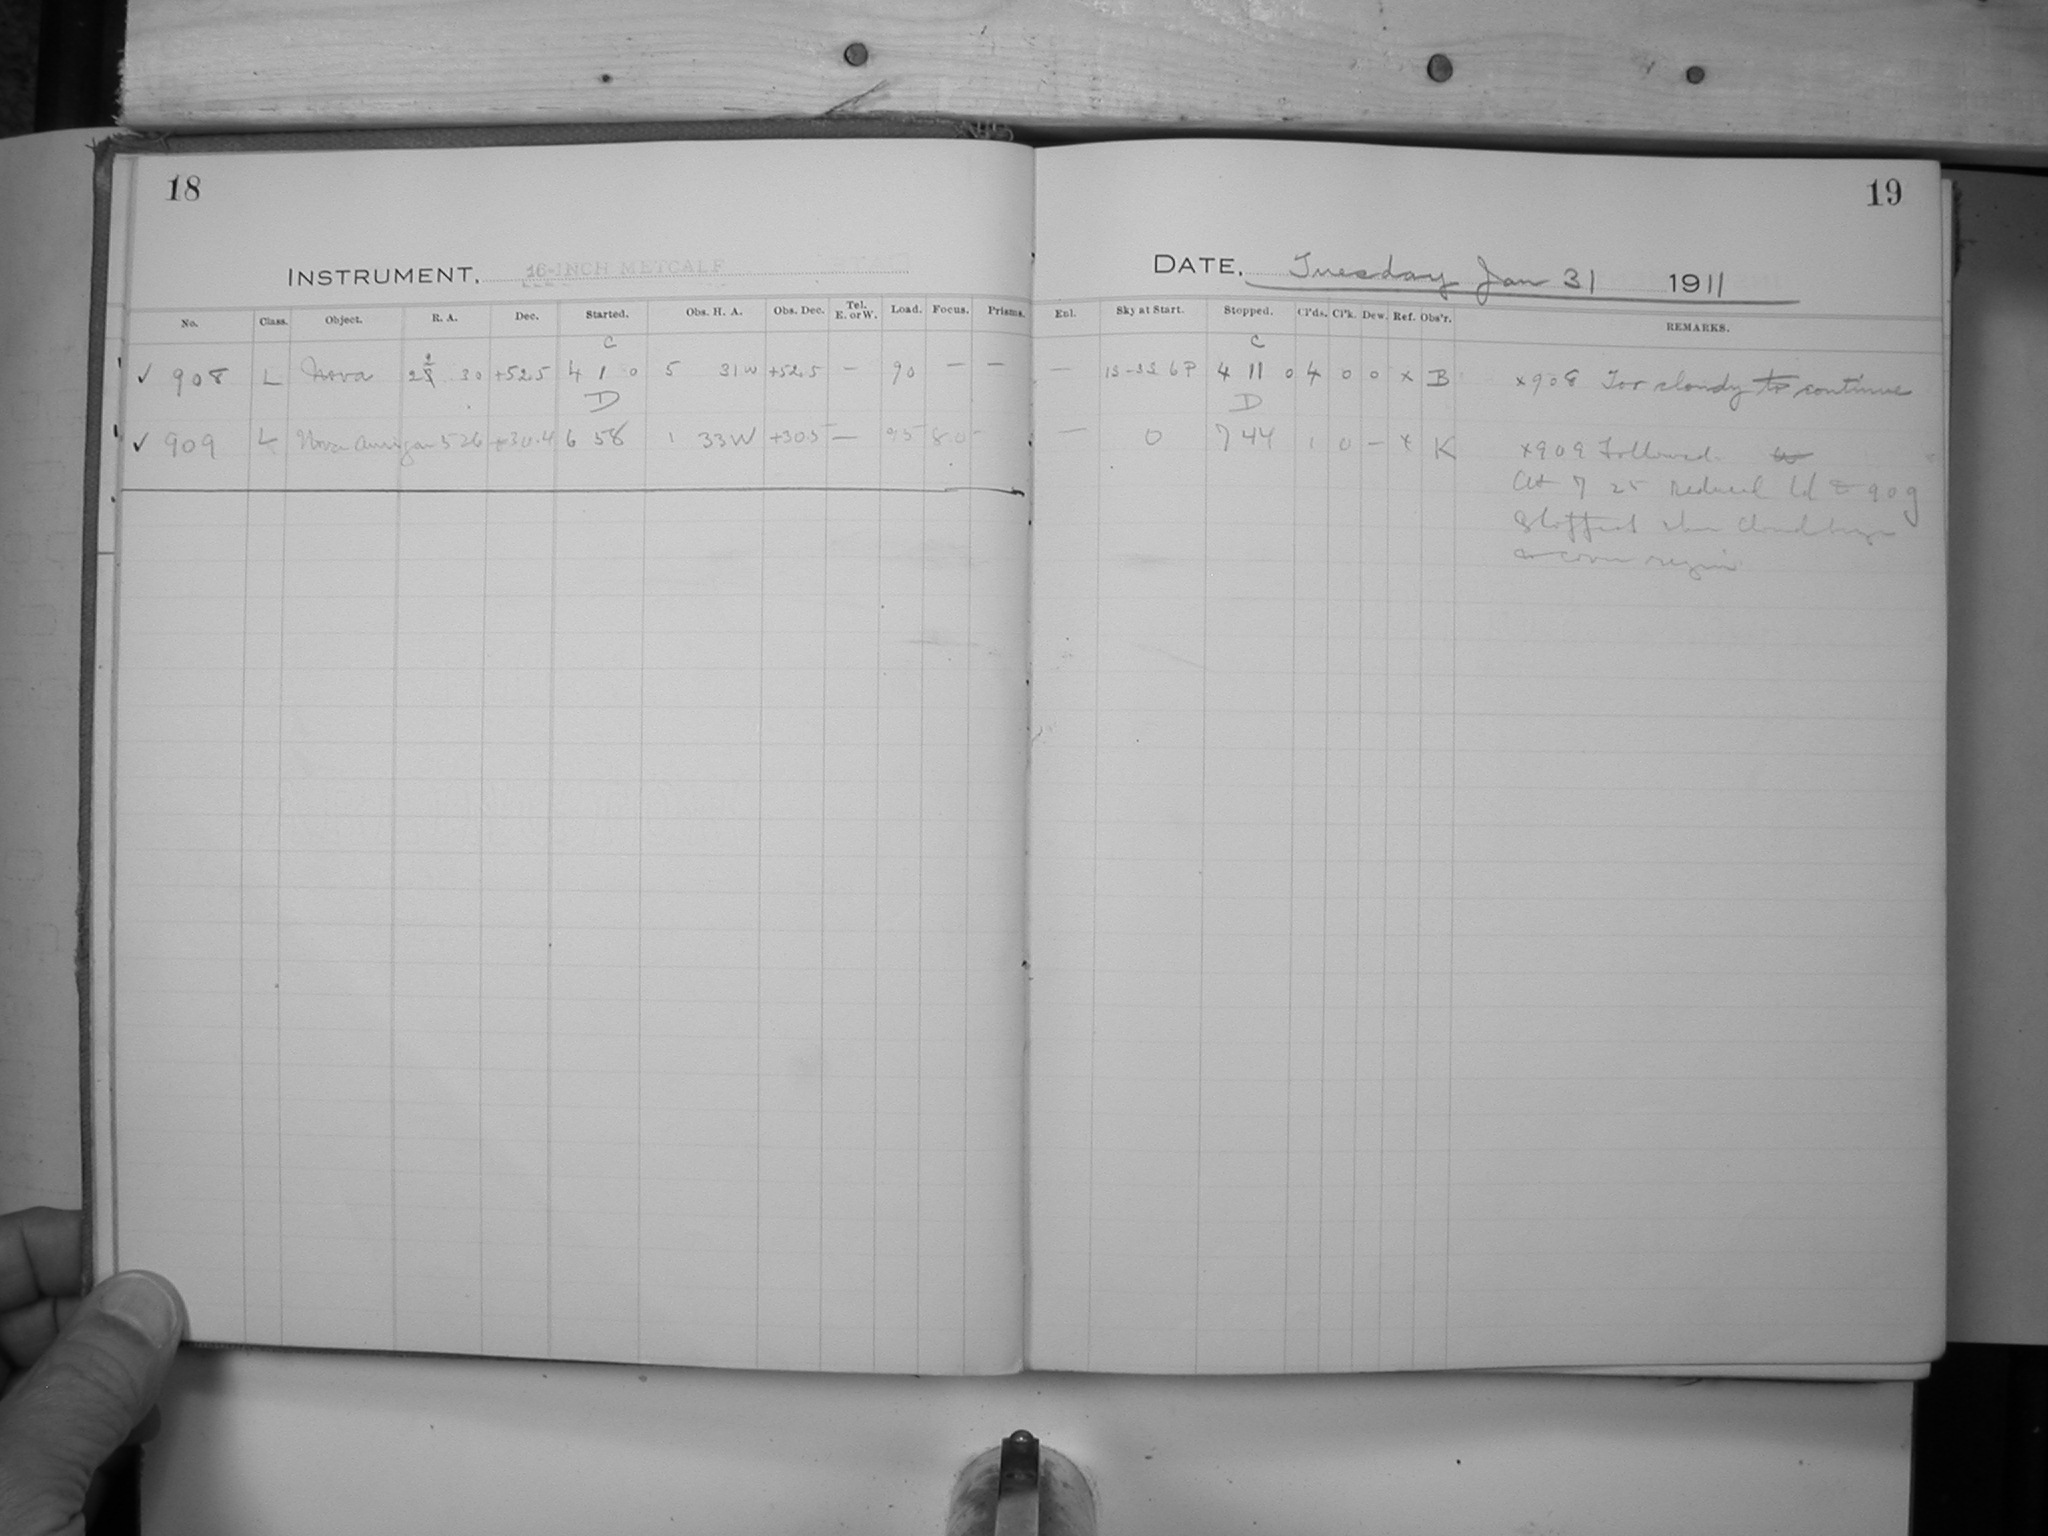 18
19
INSTRUMENT, 16-INCH METCALF
DATE, Tuesday Jan 31 1911
No. Class. Object. R. A. Dec. Started. Obs. H. A. Obs. Dec. Tel. E. or W. Load. Focus. Prisms. Enl. Sky at Start. Stopped. Cl'ds. Cl'k. Dew. Ref. Obs'r. REMARKS.
C C
✓ 908 L Nova 30 +52.5 4 1 0 5 31 W +52.5 — 90 — — — 4 11 0 4 0 0 x B x908 Too cloudy to continue
D D
✓ 909 L Nova Aurigae 5 26 +30.4 6 58 1 33 W +30.5 — 95 80 - — 0 7 44 1 0 — x K x909 Followed.
At 7 25 reduced Ld to 90g
Stopped when cloud
cover region